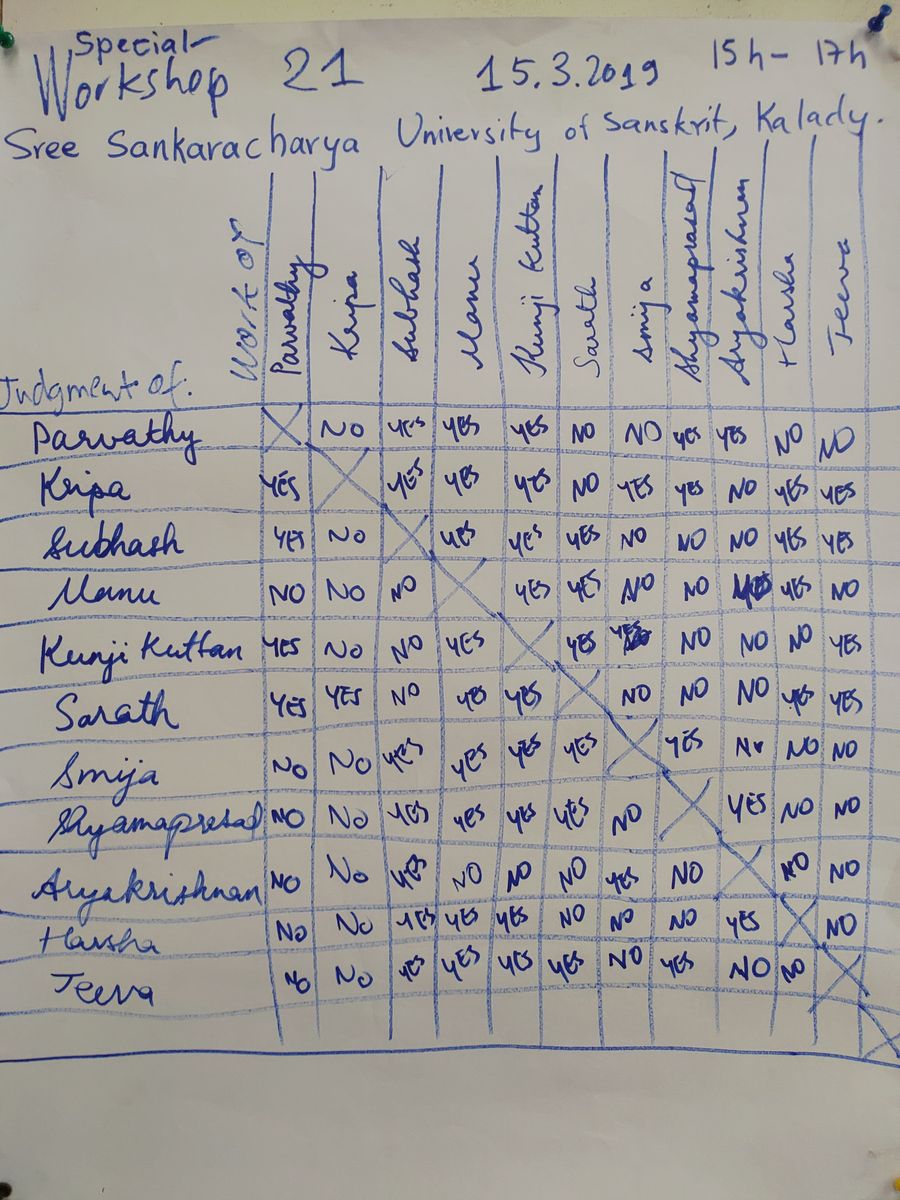 Special
Workshop 21 15.3.2019 15h - 17h
Sree Sankaracharya University of Sanskrit, Kalady.
Work of Parvathy Kripa Subhash Manu Kunji Kuttan Sarath Smija Shyamaprasad Aryakrishnan Harsha Jeeva
Judgment of:
Parvathy X NO YES YES YES NO NO YES YES NO NO
Kripa YES X YES YES YES NO YES YES NO YES YES
Subhash YES NO X YES YES YES NO NO NO YES YES
Manu NO NO NO X YES YES NO NO YES YES NO
Kunji Kuttan YES NO NO YES X YES YES NO NO NO YES
Sarath YES YES NO YES YES X NO NO NO YES YES
Smija NO NO YES YES YES YES X YES No NO NO
Shyamaprasad NO NO YES YES YES YES NO X YES NO NO
Aryakrishnan NO NO YES NO NO NO YES NO X NO NO
Harsha NO NO YES YES YES NO NO NO YES X NO
Jeeva NO NO YES YES YES YES NO YES NO NO X